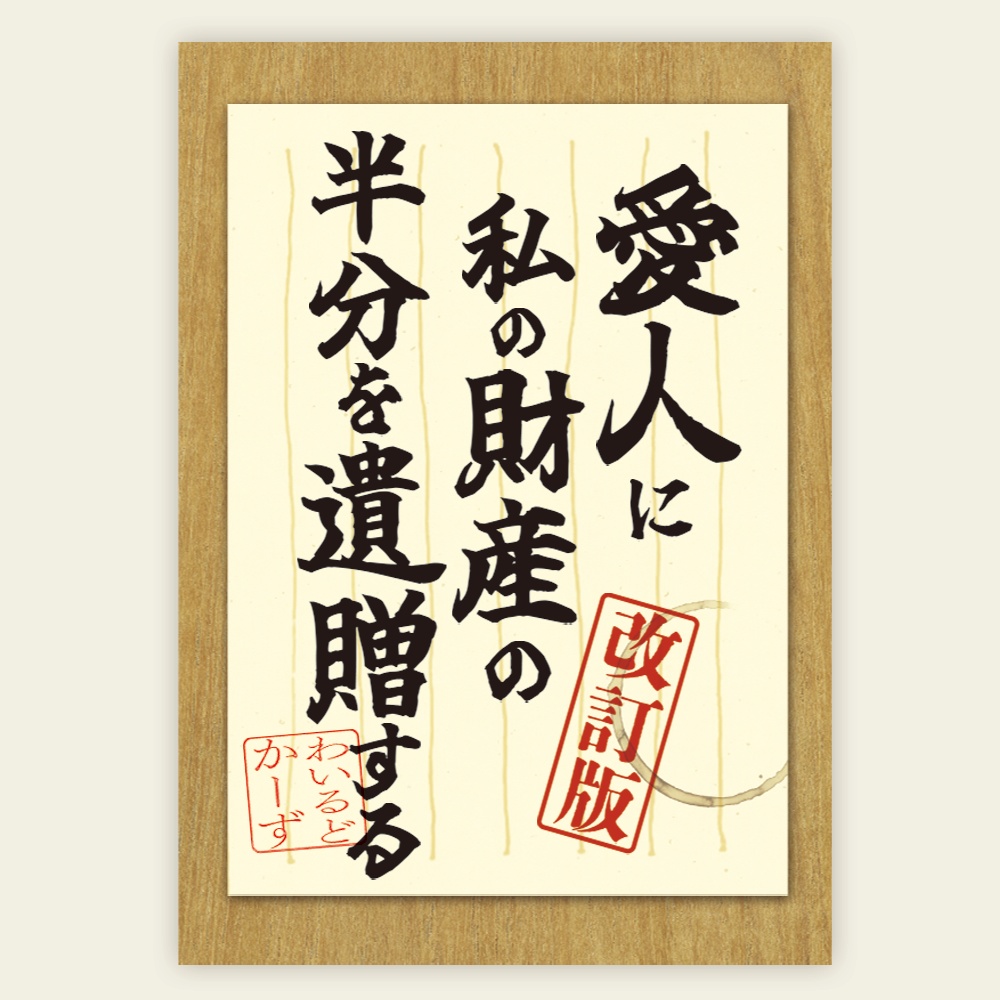 愛人に
私の財産の
半分を遺贈する
改訂版
わいるど
かーず